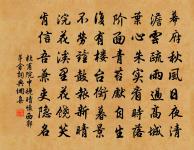 幕府秋風日夜清
澹雲疏雨過高城
葉心朱實看時落
階面青苔先自生
復有樓台銜暮景
不勞鐘鼓報新晴
浣花溪里花饒笑
肯信吾兼吏隱名
杜甫院中晚晴懷西郭
茅舍詞典網集